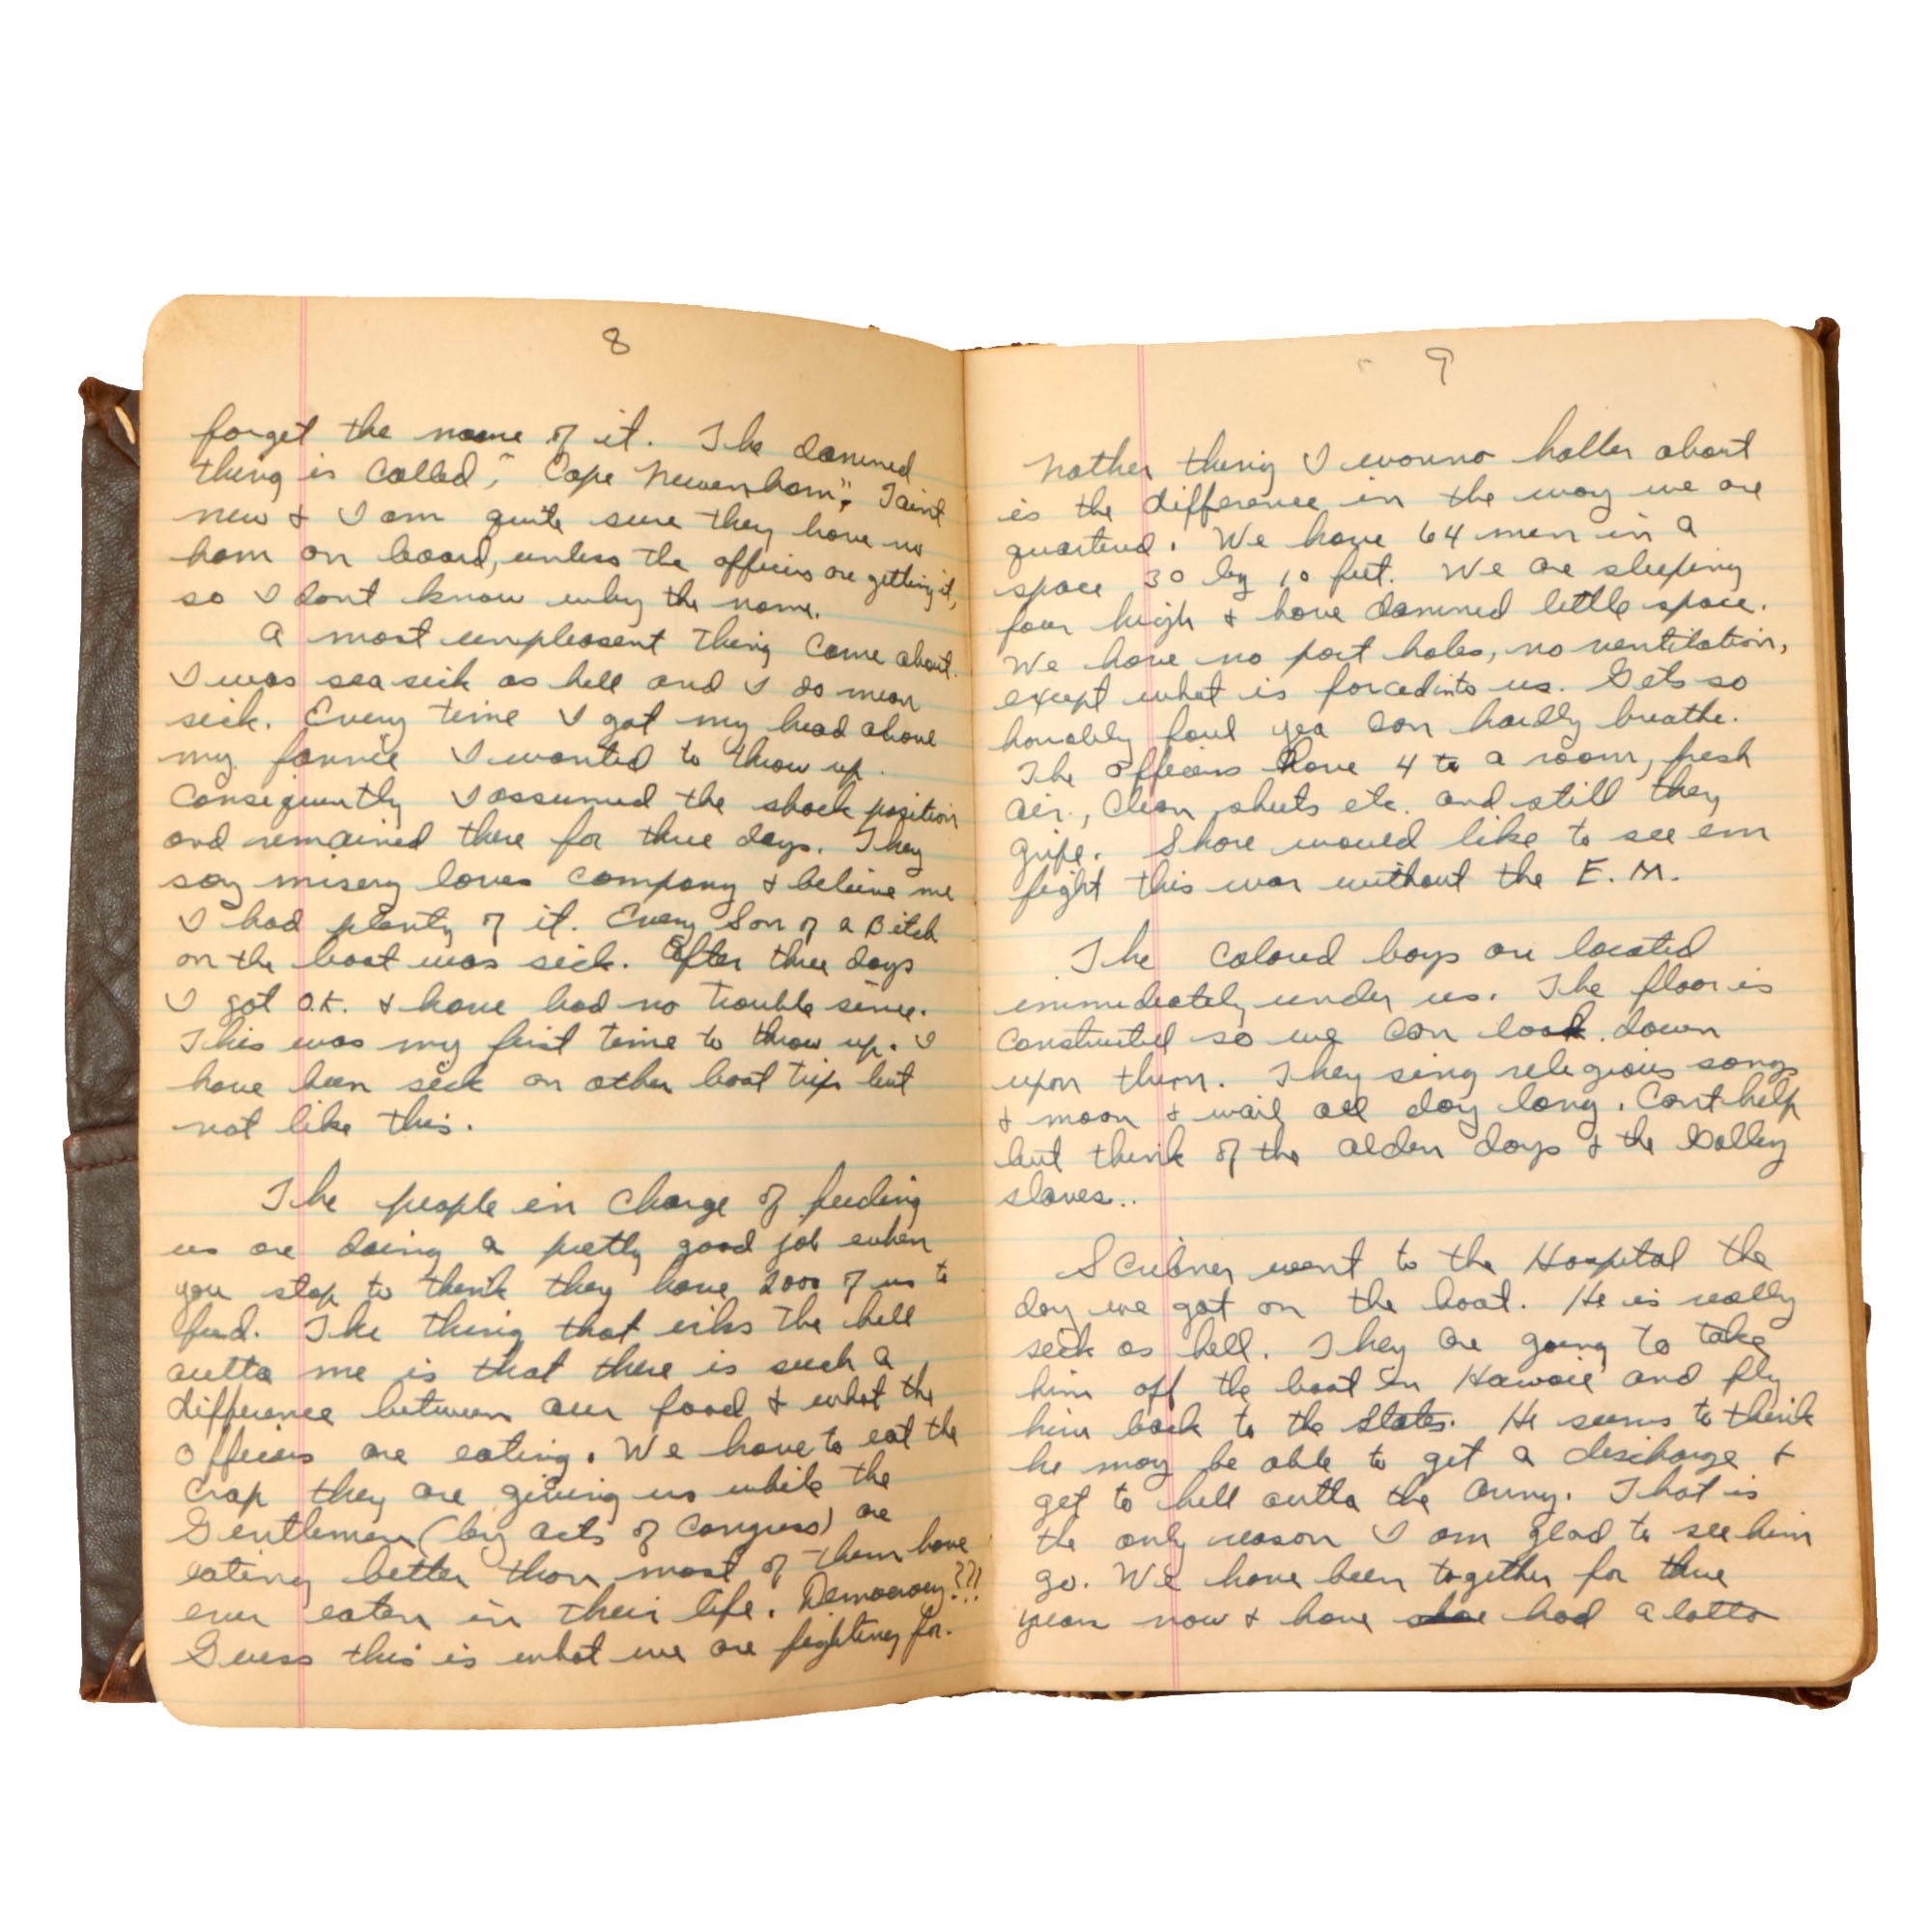 8
forget the name of it. The damned
thing is called, "Cape Newenham", Taint
new & I am quite sure they have no
ham on board, unless the officers are getting it,
so I dont know why the name.
A most unpleasent thing came about.
I was sea sick as hell and I do mean
sick. Every time I got my head above
my fannie I wanted to throw up.
Consequently I assumed the shock position
and remained there for three days. They
say misery loves company & believe me
I had plenty of it. Every Son of a Bitch
on the boat was sick. After three days
I got O.K. & have had no trouble since.
This was my first time to throw up. I
have been sick on other boat trips but
not like this.
The people in charge of feeding
us are doing a pretty good job when
you stop to think they have 2000 of us to
feed. The thing that irks the hell
outta me is that there is such a
difference between our food & what the
officers are eating. We have to eat the
crap they are giving us while the
Gentlemen (by acts of Congress) are
eating better than most of them have
ever eaten in their life. Democracy???
Guess this is what we are fighting for.
9
Nother thing I wanna holler about
is the difference in the way we are
quartered. We have 64 men in a
space 30 by 10 feet. We are sleeping
four high & have damned little space.
We have no port holes, no ventilation,
except what is forced into us. Gets so
horrably foul yea can hardly breathe.
The officers have 4 to a room, fresh
air, clean sheets etc. and still they
gripe. Shore would like to see em
fight this war without the E.M.
The colored boys are located
immediately under us. The floor is
constructed so we can look down
upon them. They sing religious songs
& moan & wail all day long. Cant help
but think of the olden days & the Galley
slaves..
Scribner went to the Hospital the
day we got on the boat. He is really
sick as hell. They are going to take
him off the boat in Hawaie and fly
him back to the States. He seems to think
he may be able to get a discharge &
get to hell outta the army. That is
the only reason I am glad to see him
go. We have been together for three
years now & have had a lotta